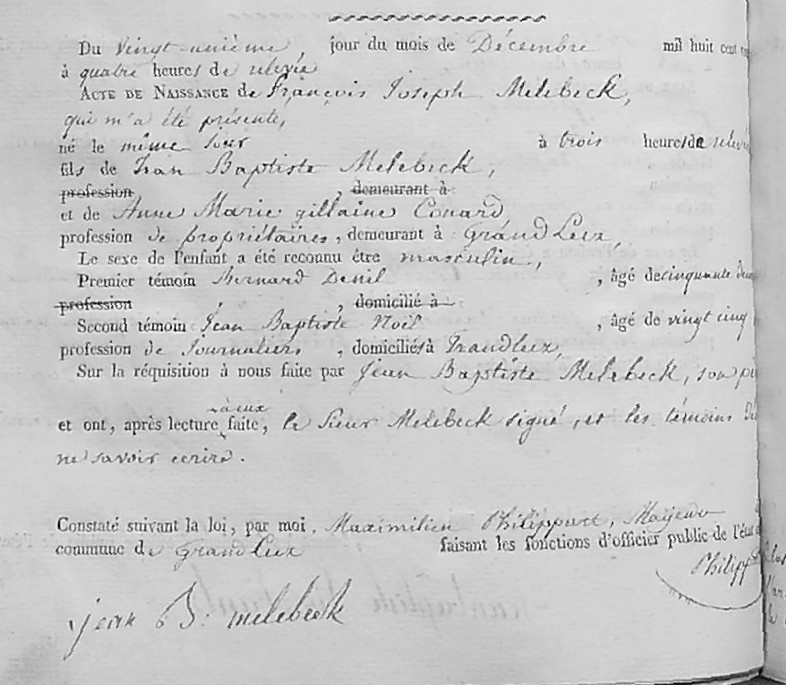 Du Vingt-unième, jour du mois de Décembre mil huit cent
à quatre heures de relevée
ACTE DE NAISSANCE de François Joseph Melebeck,
qui m'a été présenté,
né le même jour à trois heures de relevé
fils de Jean Baptiste Melebeck,
profession , demeurant à
et de Anne Marie gillaine Conard,
profession de propriétaires, demeurant à Grand Leez,
Le sexe de l'enfant a été reconnu être masculin,
Premier témoin Bernard Denil , âgé de cinquante deux
profession , domicilié à
Second témoin Jean Baptiste Noël , âgé de vingt cinq
profession de Journaliers , domiciliés à Grandleez,
Sur la réquisition à nous faite par Jean Baptiste Melebeck, son
à eux
et ont, après lecture faite, le Sieur Melebeck signé, et les témoins
ne savoir ecrire.
Constaté suivant la loi, par moi, Maximilien Philippart, Mayeur
commune de Grand Leez faisant les fonctions d'officier public de l'état
Philipp
jean B: melebeck